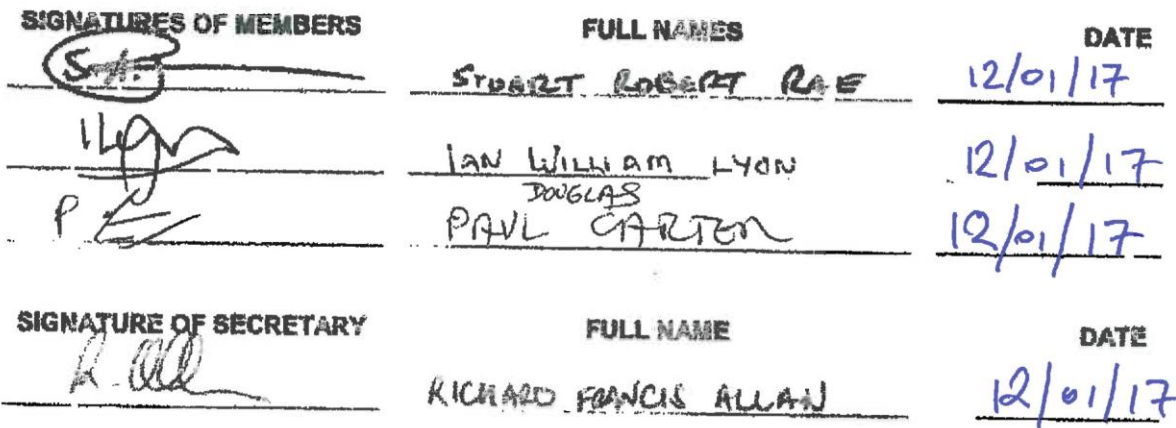 SIGNATURES OF MEMBERS FULL NAMES DATE
STUART ROBERT RAE 12/01/17
IAN WILLIAM LYON 12/01/17
DOUGLAS
P PAUL CARTER 12/01/17
SIGNATURE OF SECRETARY FULL NAME DATE
R. RICHARD FRANCIS ALLAN 12/01/17